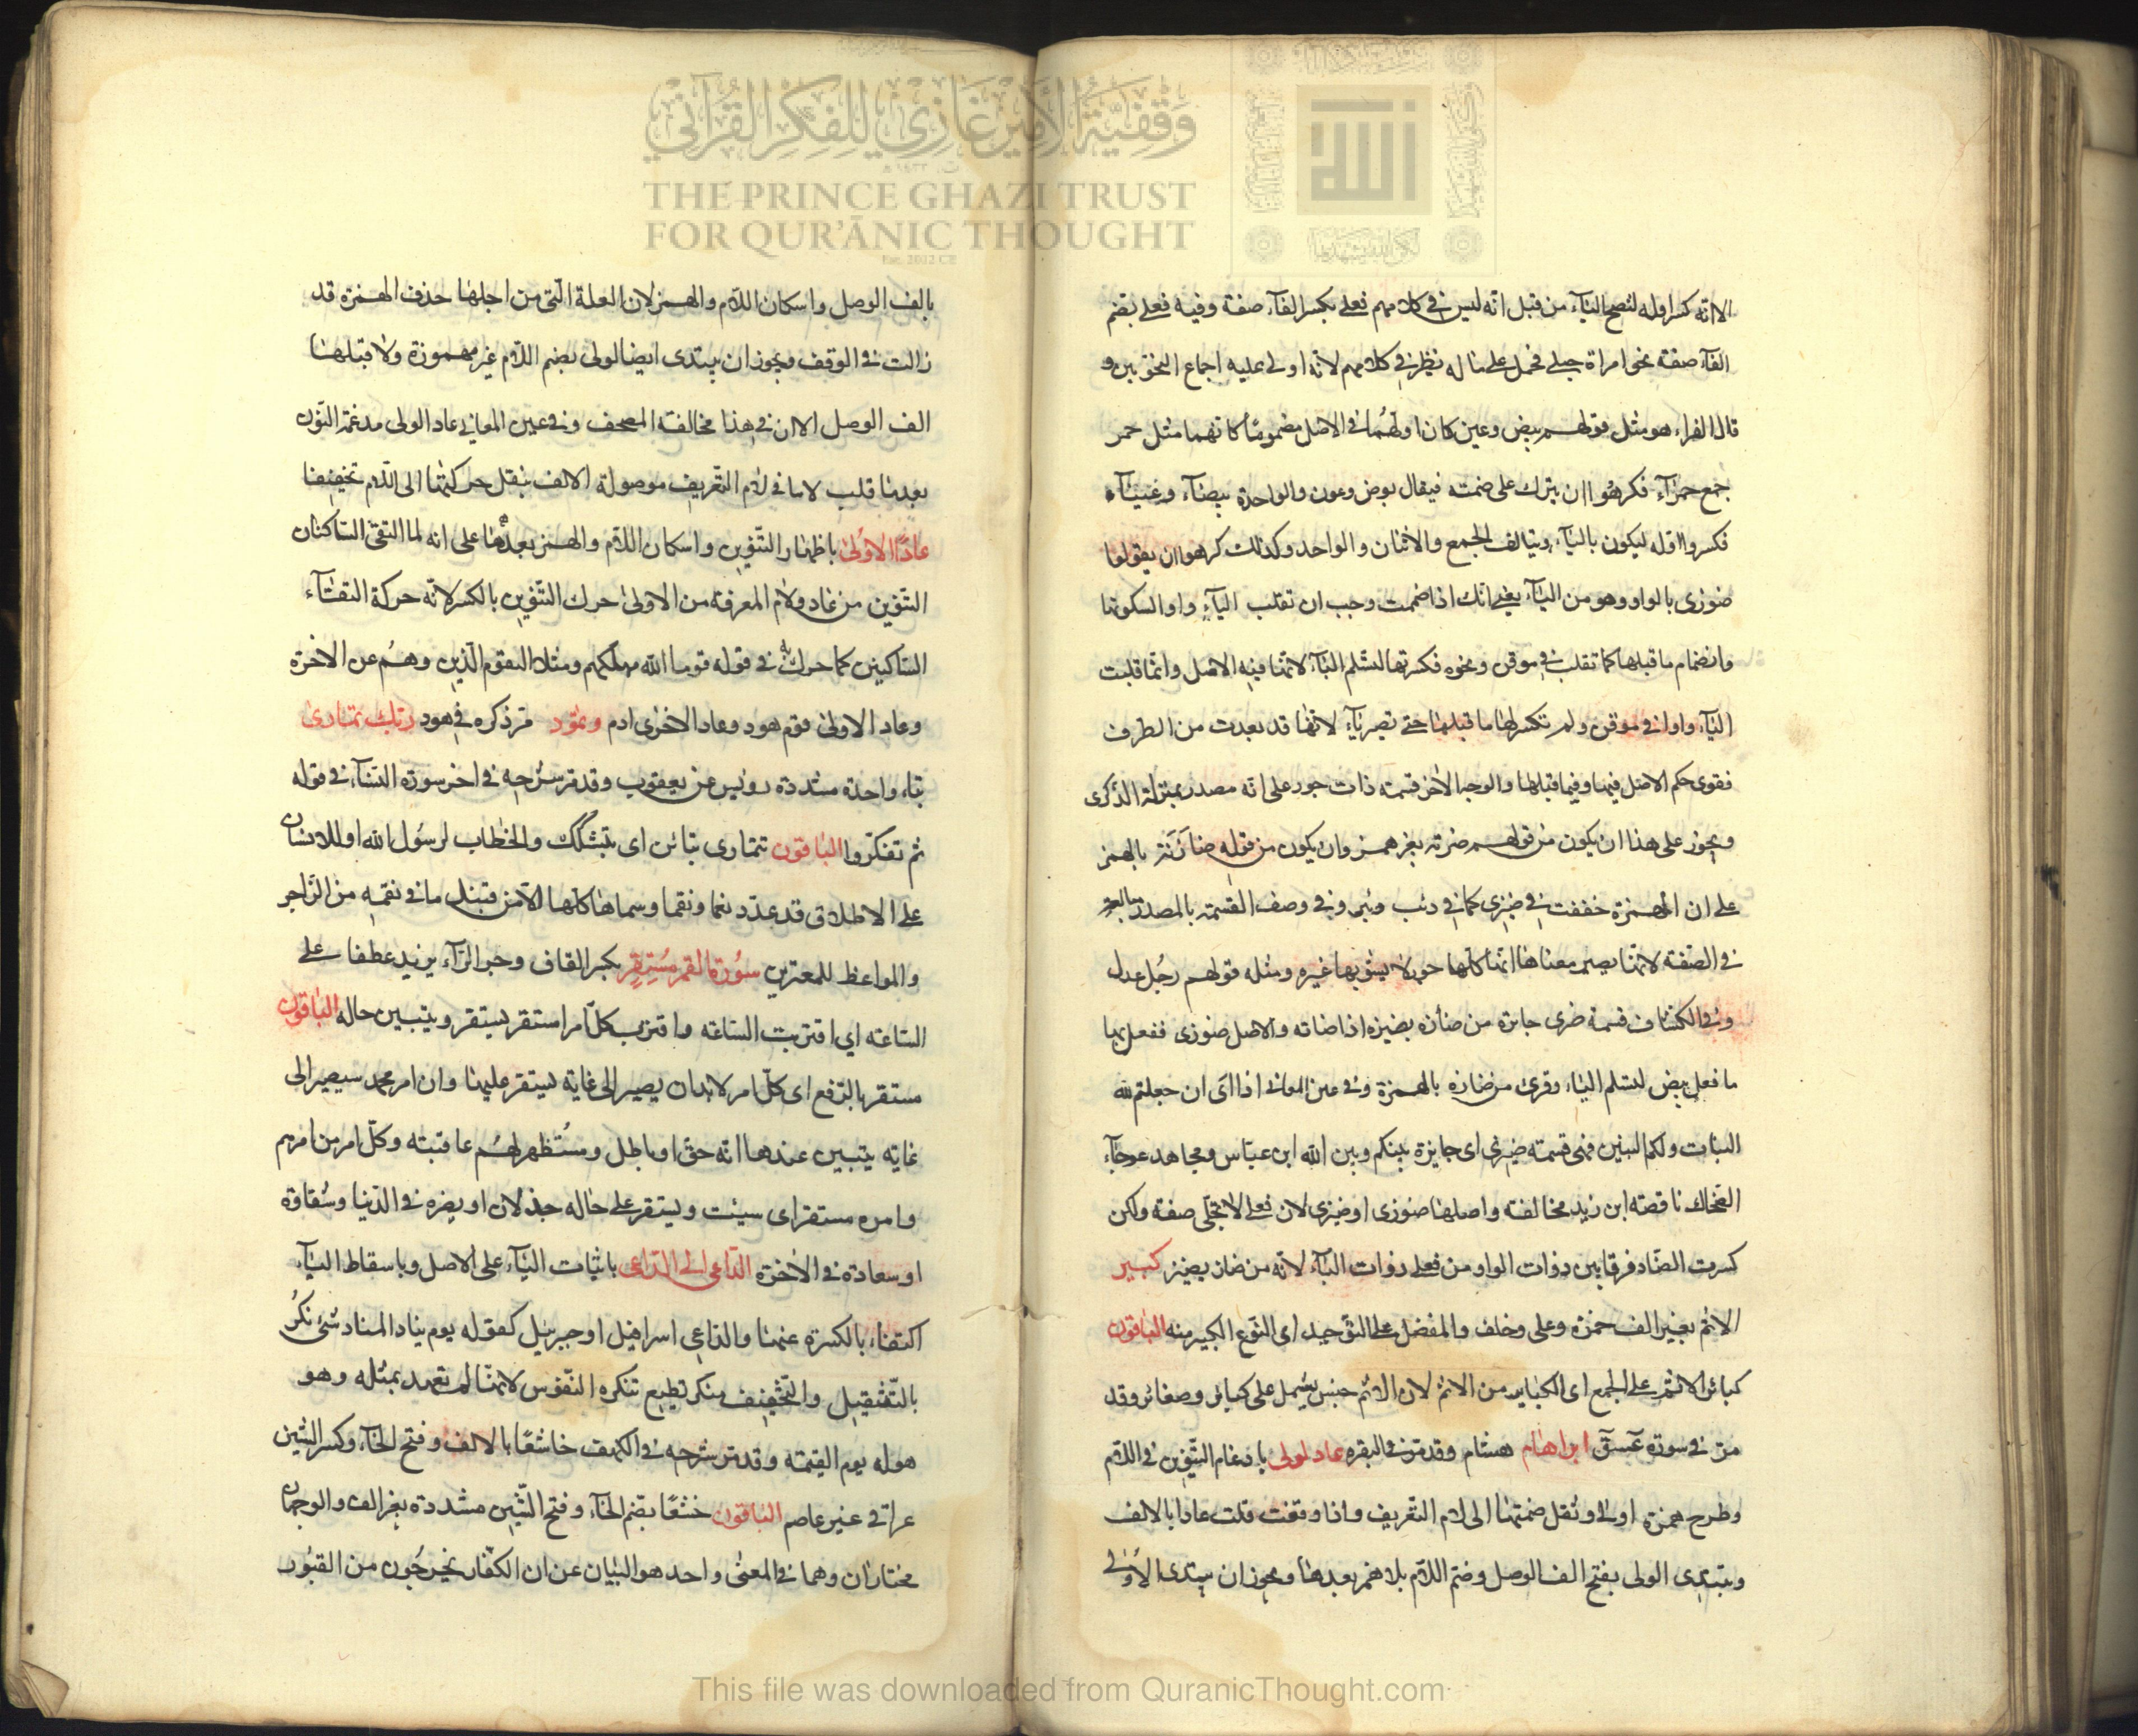 وقفية الأمير غازي للفكر القرآني
THE PRINCE GHAZI TRUST
FOR QUR'ĀNIC THOUGHT
Est. 2012 CE
الا انه كسر اوله لتصح اليآء من قبل انه ليس في كلامهم فعلى بكسر الفآء صفة وفيه فعلى بضم
الفآء صفة نحو امراة حبلى فحمل على ما له نظير في كلامهم لانه اولى عليه اجماع النحويين و
قال الفراء هو مثل قولهم بيض وعين كان اولهما في الاصل مضموما كانهما مثل حمر
جمع حمرآء فكرهوا ان يترك على ضمته فيقال بوض وعون والواحدة بيضآء وعينآء
فكسروا اوله ليكون باليآء ويتالف الجمع والاثنان والواحد وكذلك كرهوا ان يقولوا
ضوزى بالواو وهو من اليآء يعني انك اذا ضممت وجب ان تقلب اليآء واوا لسكونها
وانضمام ما قبلها كما تقلب في موقن ونحوه فكسرتها لتسلم اليآء لانها فيه الاصل وانما قلبت
اليآء واوا في موقن ولم تكسر لها ما قبلها حتى تصير يآء لانها قد بعدت من الطرف
فقوى حكم الاصل فيها وفيما قبلها والوجه الاخر قسمة ذات جور على انه مصدر بمنزلة الذكرى
ويجوز على هذا ان يكون من قولهم ضزته بغير همز وان يكون من قوله ضأزته بالهمز
على ان الهمزة خففت في ضيزى كما في ذئب وبئر وفي وصف القسمة بالمصدر
في الصفة لانها يصير معناها انها كلها جور لا يشوبها غيره ومثله قولهم رجل عدل
وفي الكشاف قسمة ضيزى جائرة من ضازه يضيزه اذا ضامه والاصل ضوزى ففعل بها
ما فعل ببيض لتسلم اليآء وقرئ من ضازه بالهمزة وفي عين المعاني اذا اى ان جعلتم لله
البنات ولكم البنين فهى قسمة ضيزى اى جايزة بينكم وبين الله ابن عباس ومجاهد عوجآء
الضحاك ناقصة ابن زيد مخالفة واصلها ضوزى او ضيزى لان فعلى لا تجئ صفة ولكن
كسرت الضاد فرقا بين ذوات الواو من فعلى ذوات اليآء لانه من ضاز يضيز كبير
الاثم بغير الف حمزة وعلى وخلف والمفضل على التوحيد اى النوع الكبير منه الباقون
كبائر الاثم على الجمع اى الكباير من الاثم لان الاثم جنس يشمل على كبائر وصغائر وقد
مر في سورة عسق ابراهام هشام وقد مر في البقره عاد لولى بادغام التنوين في اللام
وطرح همزة اولى ونقل ضمتها الى لام التعريف واذا وقفت قلت عادا بالالف
وتبتدى الولى بفتح الف الوصل وضم اللام بلا همز بعدها ويجوز ان يبتدى الاولى
بالف الوصل واسكان اللام والهمز لان العلة التى من اجلها حذف الهمزة قد
زالت في الوقف ويجوز ان يبتدى ايضا لولى بضم اللام غير مهموزة ولا قبلها
الف الوصل الا ان في هذا مخالفة المصحف وفي عين المعاني عاد الولى مدغمة النون
بعدما قلب لاما في لام التعريف موصولة الالف بنقل حركتها الى اللام تخفيفا
عادًا الاولى باظهار التنوين واسكان اللام والهمز بعدها على انه لما التقى الساكنان
التنوين من عاد ولام المعرفة من الاولى حرك التنوين بالكسر لانه حركة التقآء
الساكنين كما حرك في قوله قوما الله مهلكهم ومثلا القوم الذين وهم عن الاخرة
وعاد الاولى قوم هود وعاد الاخرى ادم وثمود مر ذكره في هود ربك تمارى
بتاء واحدة مشددة رويس عن يعقوب وقد مر شرحه في اخر سورة النسآء في قوله
ثم تفكروا الباقون تتمارى بتائن اى تتشكك والخطاب لرسول الله او للانسان
على الاطلاق قد عدد نعما ونقما وسماها كلها الآء من قبل ما في نقمه من الزاجر
والمواعظ للمعتبرين سورة القمر مستقر بكسر القاف وجر الرآء يزيد عطفا على
الساعة اي اقتربت الساعة واقترب كل امر استقر يستقر ويتبين حاله الباقون
مستقر بالرفع اى كل امر لابد ان يصير الى غاية يستقر عليها وان امر محمد سيصير الى
غاية يتبين عندها انه حق او باطل ومستظهر لهم عاقبته وكل امر من امرهم
وامره مستقر اى سيثبت ويستقر على حاله خذلان او بضره في الدنيا وشقاوة
او سعادة في الاخرة الداعى الى الداعى باثبات اليآء على الاصل وباسقاط اليآء
اكتفاء بالكسرة عنها والداعى اسرافيل او جبرئيل كقوله يوم يناد المناد شئ نكر
بالتثقيل والتخفيف منكر تطيع تنكره النفوس لانها لم تعهد بمثله وهو
هوله يوم القيمة وقد مر شرحه في الكهف خاشعًا بالالف وفتح الخآء وكسر الشين
عراقى غير عاصم الباقون خشعًا بضم الخآء وفتح الشين مشددة بغير الف والوجهان
مختاران وهما في المعنى واحد هو البيان عن ان الكفار يخرجون من القبور
This file was downloaded from QuranicThought.com